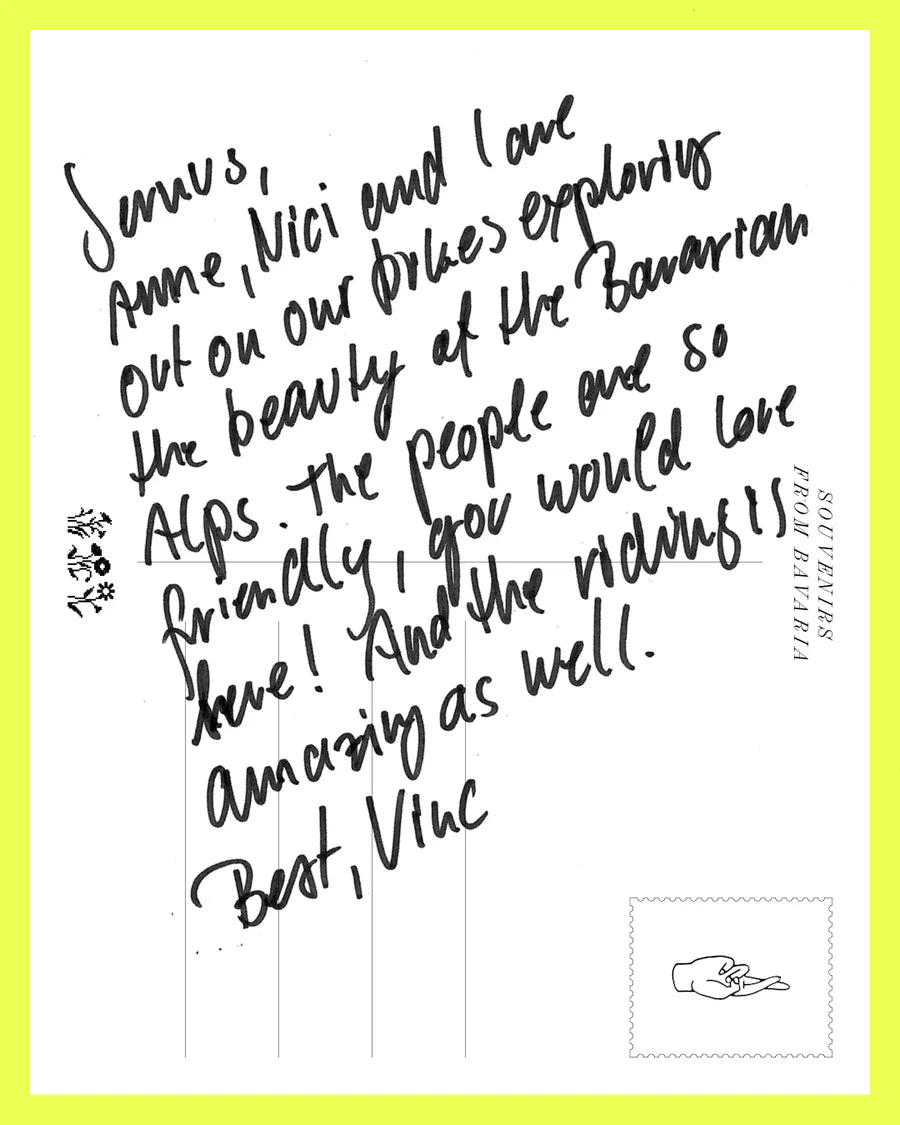 Servus,
Anne, Nici and I are
out on our bikes exploring
the beauty of the Bavarian
Alps. The people are so
friendly, you would love
here! And the riding is
amazing as well.
Best, Vinc
SOUVENIRS
FROM BAVARIA